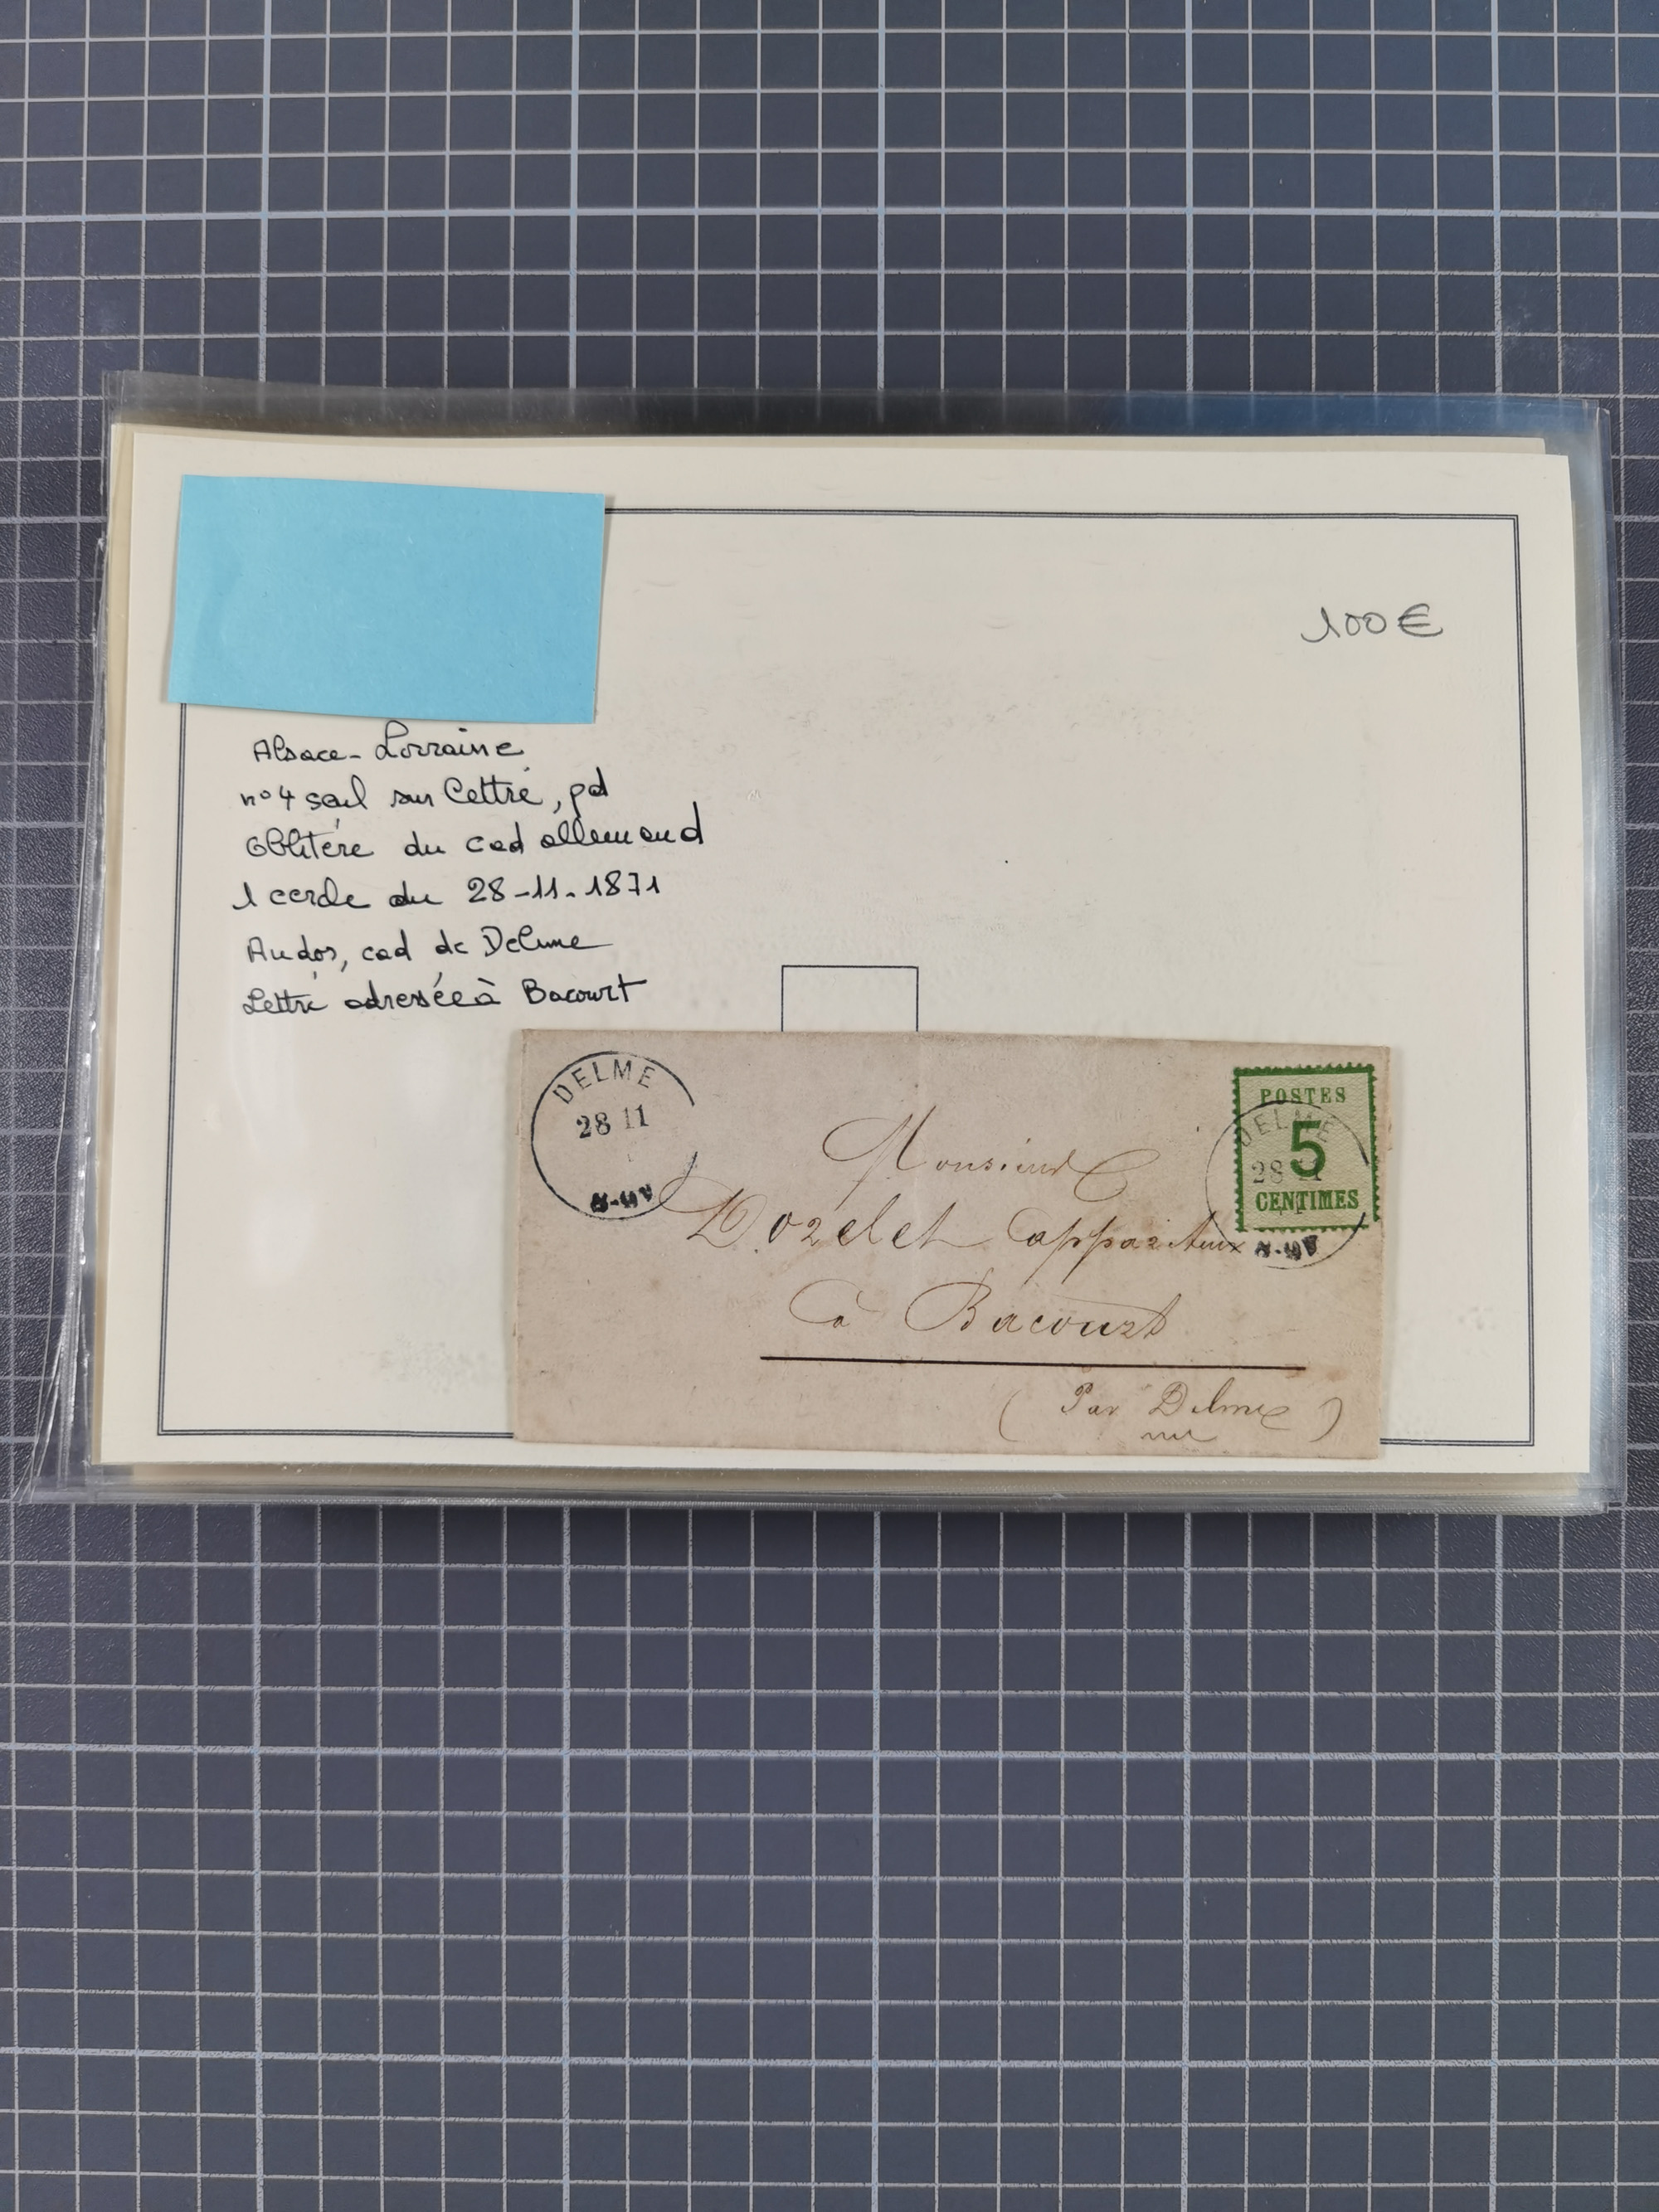 100€
Alsace-Lorraine
n°4 seul sur Lettre, pd
oblitéré du cad allemand
1 cercle du 28-11-1871
Au dos, cad de Delme
Lettre adressée à Bacourt
DELME
28 11
POSTES
5
CENTIMES
DELME
28 11
Monsieur
Dozelet appariteur
à Bacourt
(Par Delme)